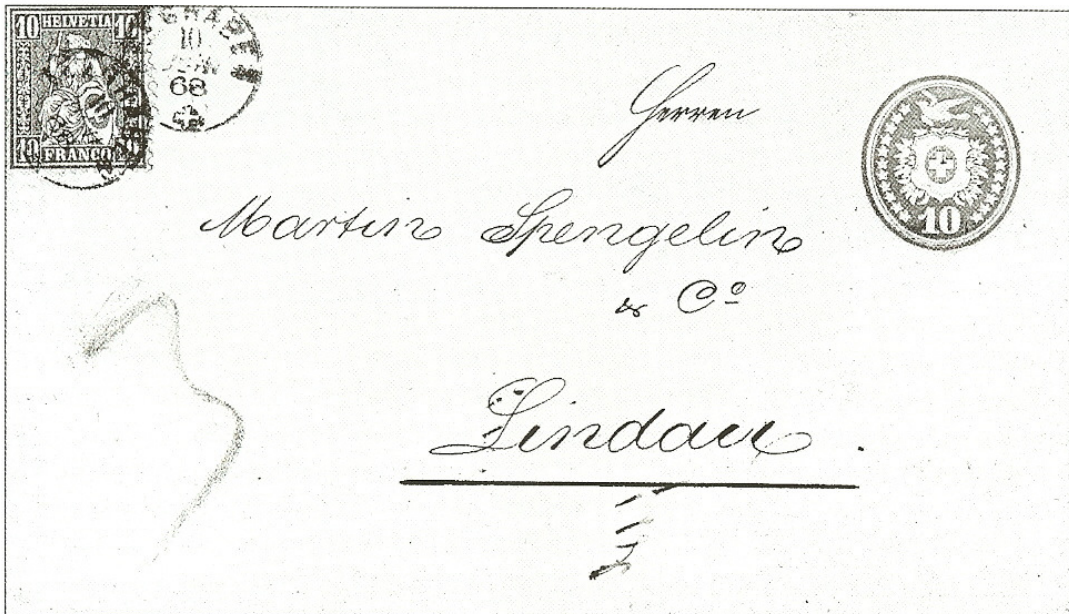 10 HELVETIA 10
10 FRANCO 10
10
68
Herren
Martin Spengelin
& Co
Lindau.
10